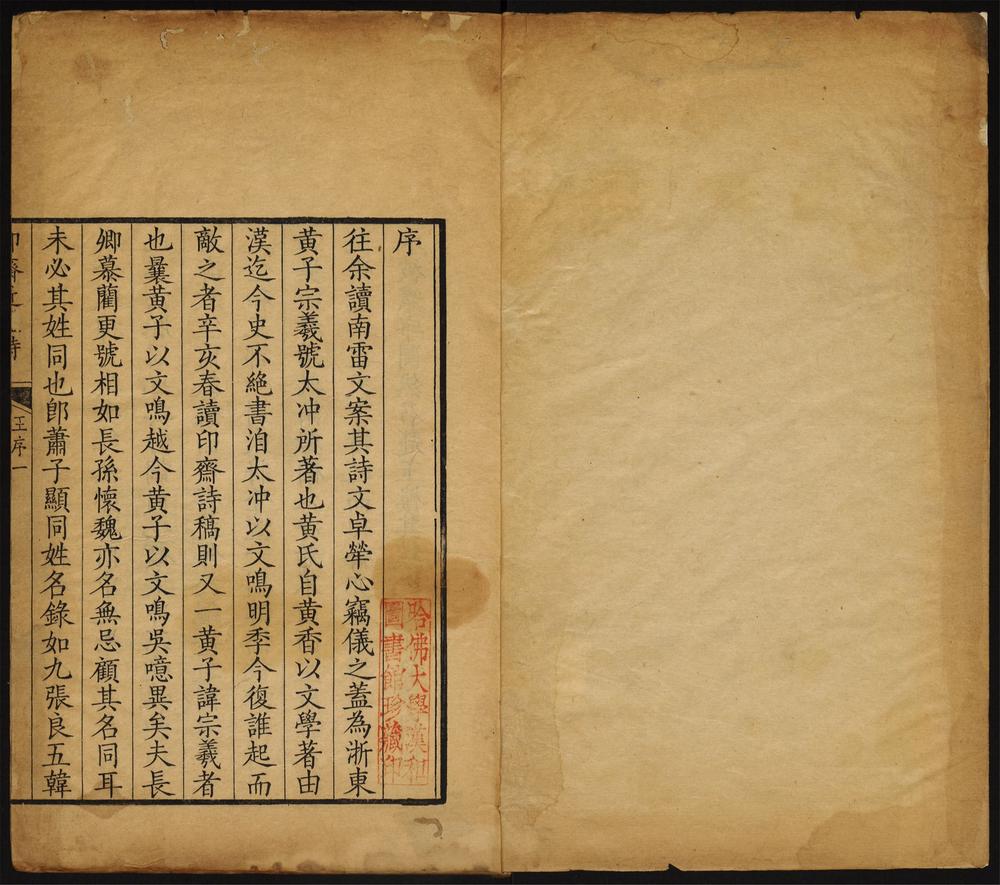 序
往余讀南雷文案其詩文卓犖心竊儀之蓋為浙東
黄子宗羲號太冲所著也黄氏自黄香以文學著由
漢迄今史不絶書洎太冲以文鳴明季今復誰起而
敵之者辛亥春讀印齋詩稿則又一黄子諱宗羲者
也曩黄子以文鳴越今黄子以文鳴吳噫異矣夫長
卿慕藺更號相如長孫懷魏亦名無忌顧其名同耳
未必其姓同也郎蕭子顯同姓名錄如九張良五韓
王序一
哈佛大學漢和
圖書館珍藏印